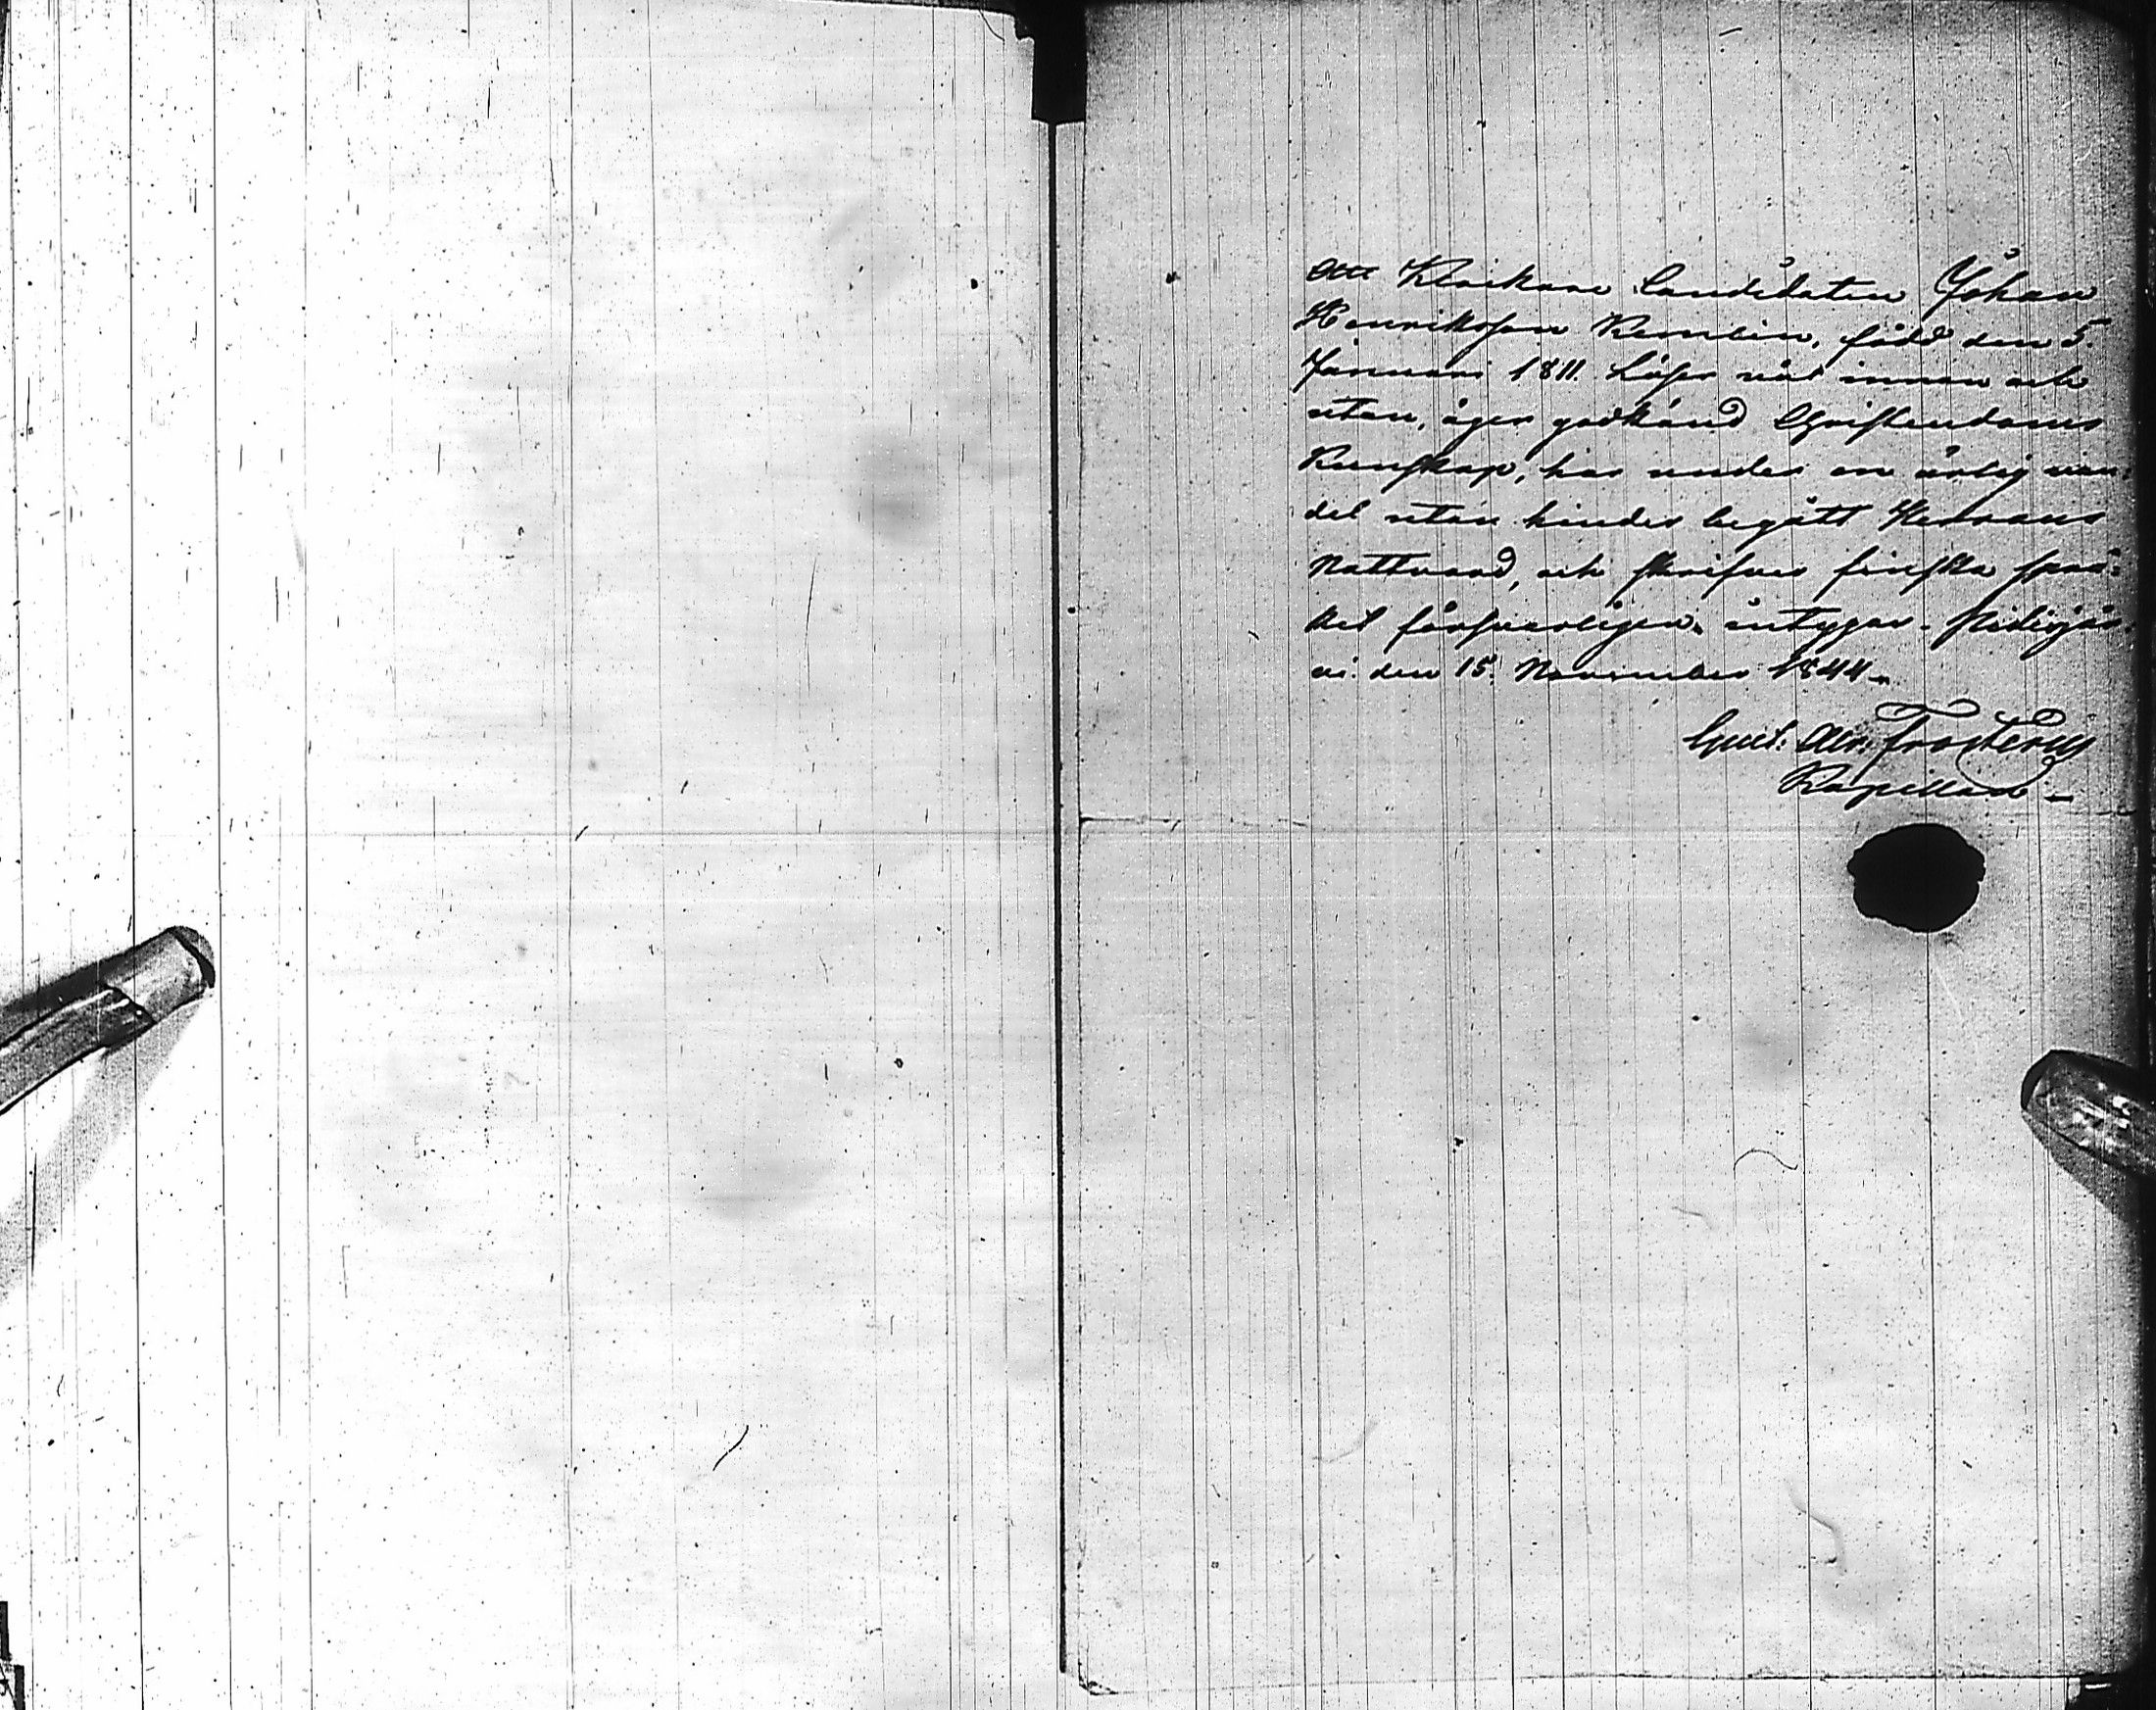 Att Klockare Candidaten Johan
Henriksson Kemlin, född den 5.
Januari 1811. Läser väl innan och
utan, äger godkänd Christendoms
Kunskap, har under en ärlig van:
del utan hinder begått Herrans
Nattvard, och skrifver finska språ:
ket försvarligen, intygar. Pidisjär:
vi den 15. November 1844.
Gust. Adr. Frosterus
Kapellan